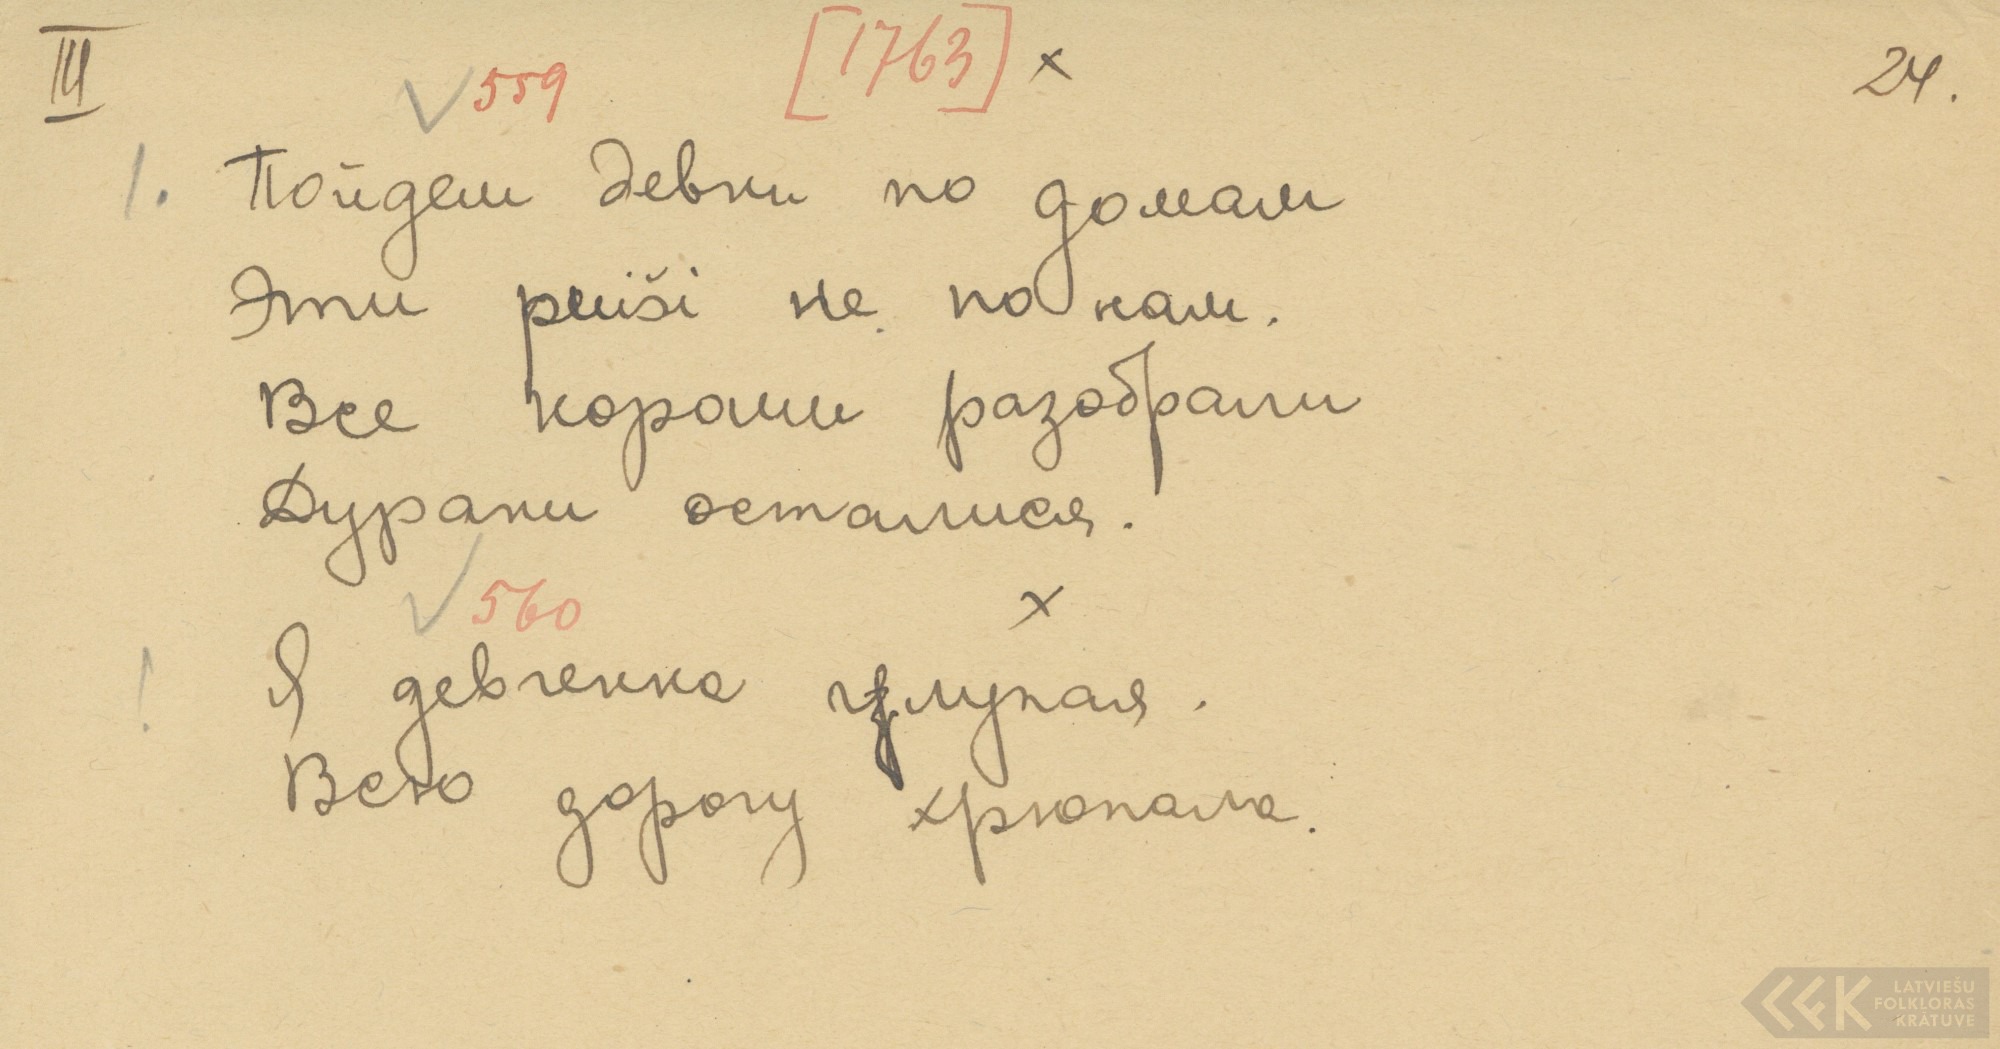 III
✓ 559 [1763] x 24.
1. Пойдем девки по домам
Эти puiši не по нам.
Все хороши разобрали
Дураки осталися.
✓ 560 x
! Я девченка глупая.
Всю дорогу хрюпала.
LATVIEŠU
FOLKLORAS
KRĀTUVE